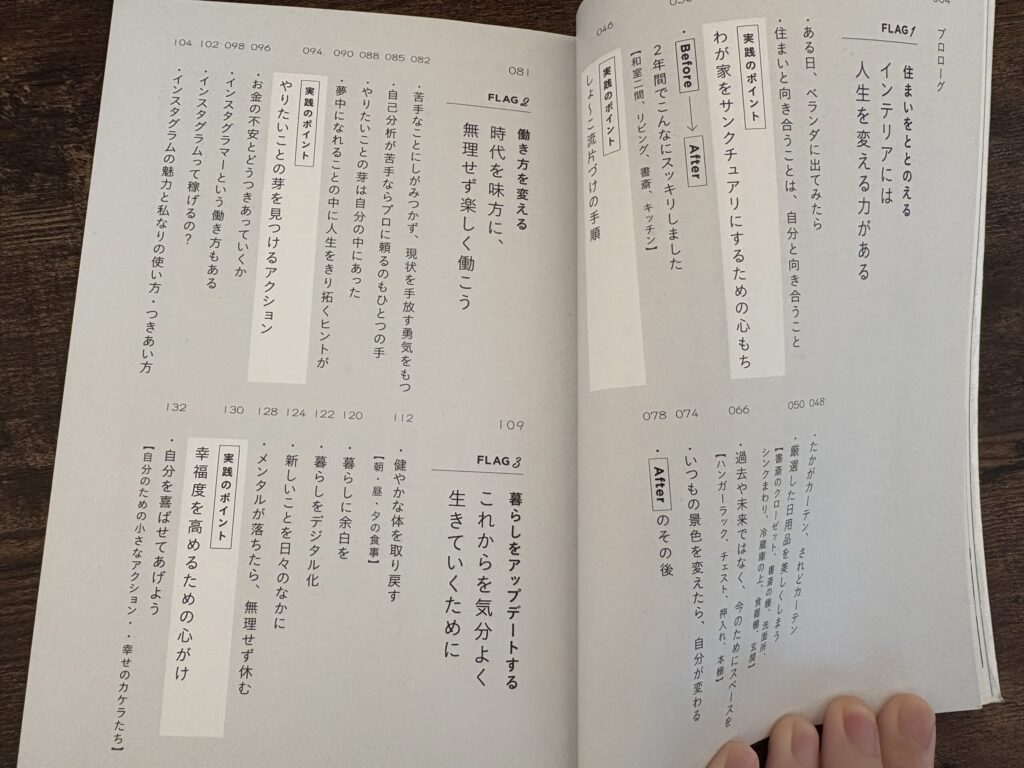 004
プロローグ
FLAG 1
住まいをととのえる
インテリアには
人生を変える力がある
・ある日、ベランダに出てみたら
・住まいと向き合うことは、自分と向き合うこと
実践のポイント
わが家をサンクチュアリにするための心もち
・Before → After
2年間でこんなにスッキリしました
【和室二間、リビング、書斎、キッチン】
046
実践のポイント
しょ〜こ流片づけの手順
048
・たかがカーテン、されどカーテン
050
・厳選した日用品を美しくしまう
【書斎のクローゼット、書斎の棚、洗面所、
シンクまわり、冷蔵庫の上、食器棚、玄関】
066
・過去や未来ではなく、今のためにスペースを
【ハンガーラック、チェスト、押入れ、本棚】
074
・いつもの景色を変えたら、自分が変わる
078
・Afterのその後
081
FLAG 2
働き方を変える
時代を味方に、
無理せず楽しく働こう
082
・苦手なことにしがみつかず、現状を手放す勇気をもつ
085
・自己分析が苦手ならプロに頼るのもひとつの手
088
・やりたいことの芽は自分の中にあった
090
・夢中になれることの中に人生をきり拓くヒントが
094
実践のポイント
やりたいことの芽を見つけるアクション
096
・お金の不安とどうつきあっていくか
098
・インスタグラマーという働き方もある
102
・インスタグラムって稼げるの？
104
・インスタグラムの魅力と私なりの使い方・つきあい方
109
FLAG 3
暮らしをアップデートする
これからを気分よく
生きていくために
112
・健やかな体を取り戻す
【朝・昼・夕の食事】
120
・暮らしに余白を
122
・暮らしをデジタル化
124
・新しいことを日々のなかに
128
・メンタルが落ちたら、無理せず休む
130
実践のポイント
幸福度を高めるための心がけ
132
・自分を喜ばせてあげよう
【自分のための小さなアクション・・幸せのカケラたち】